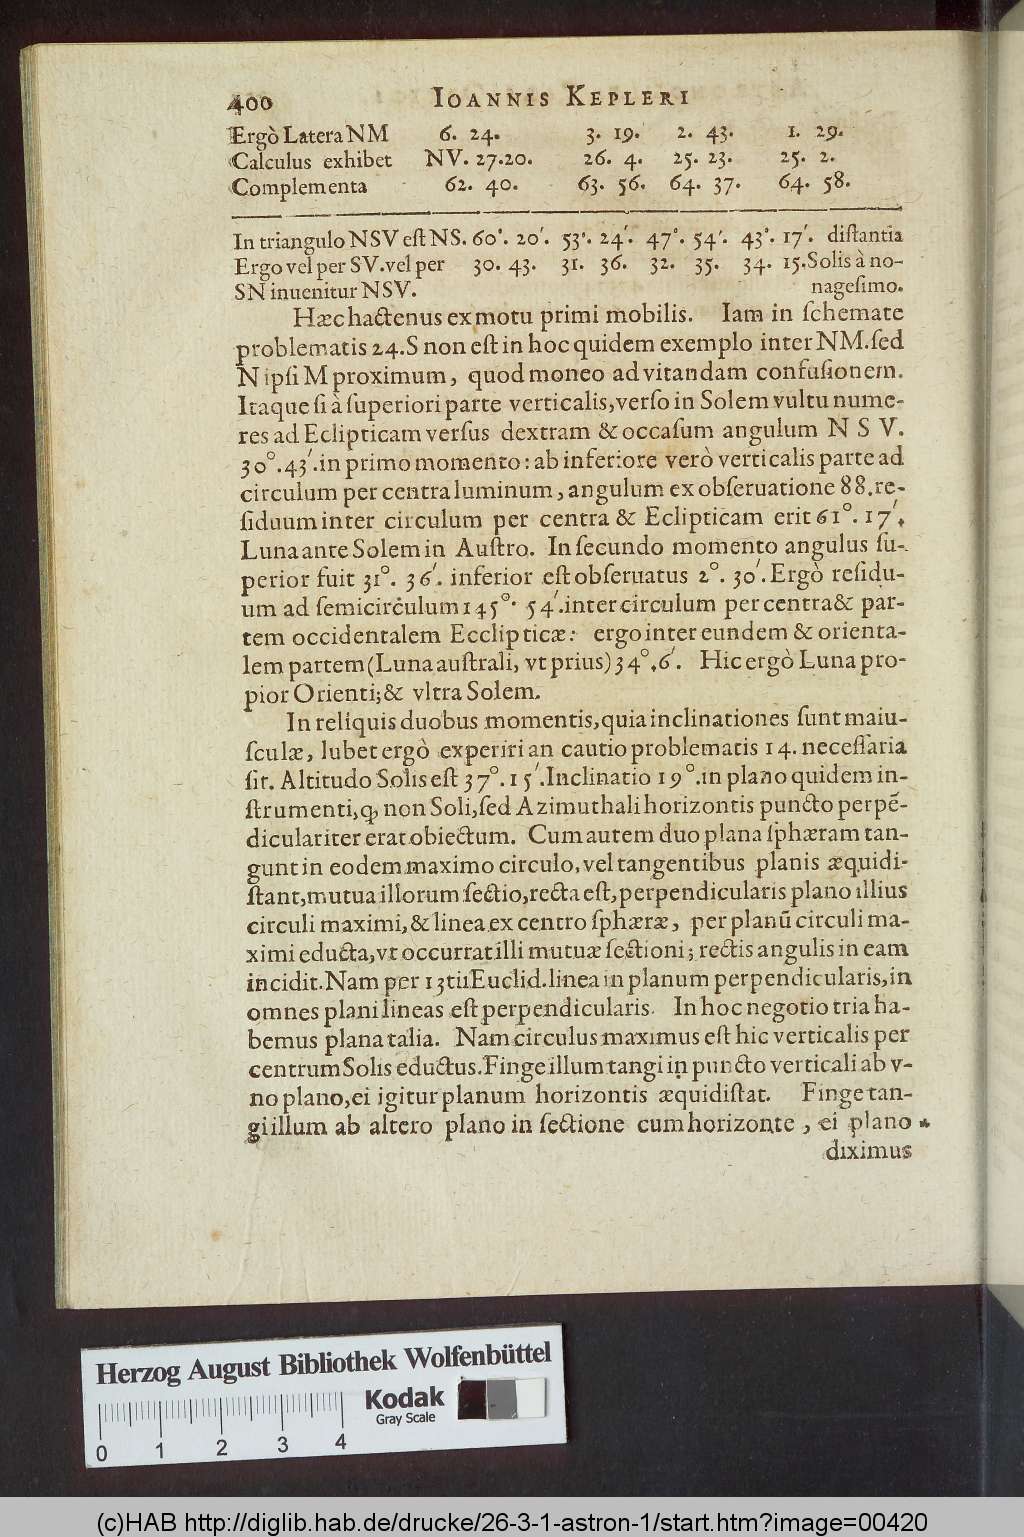 400 IOANNIS KEPLERI
Ergò Latera NM 6. 24. 3. 19. 2. 43. 1. 29.
Calculus exhibet NV. 27.20. 26. 4. 25. 23. 25. 2.
Complementa 62. 40. 63. 56. 64. 37. 64. 58.
In triangulo NSV eſt NS. 60°. 20′. 53°. 24′. 47°. 54′. 43°. 17′. diſtantia
Ergo vel per SV. vel per 30. 43. 31. 36. 32. 35. 34. 15. Solis à no-
SN inuenitur NSV. nageſimo.
Hæc hactenus ex motu primi mobilis. Iam in ſchemate
problematis 24. S non eſt in hoc quidem exemplo inter NM. ſed
N ipſi M proximum, quod moneo ad vitandam confuſionem.
Itaque ſi à ſuperiori parte verticalis, verſo in Solem vultu nume-
res ad Eclipticam verſus dextram & occaſum angulum N S V.
30°. 43′. in primo momento: ab inferiore verò verticalis parte ad
circulum per centra luminum, angulum ex obſeruatione 88. re-
ſiduum inter circulum per centra & Eclipticam erit 61°. 17′.
Luna ante Solem in Auſtro. In ſecundo momento angulus ſu-
perior fuit 31°. 36′. inferior eſt obſeruatus 2°. 30′. Ergò reſidu-
um ad ſemicirculum 145°. 54′. inter circulum per centra & par-
tem occidentalem Ecclipticæ: ergo inter eundem & orienta-
lem partem (Luna auſtrali, vt prius) 34°. 6′. Hic ergò Luna pro-
pior Orienti; & vltra Solem.
In reliquis duobus momentis, quia inclinationes ſunt maiu-
ſculæ, lubet ergò experiri an cautio problematis 14. neceſſaria
ſit. Altitudo Solis eſt 37°. 15′. Inclinatio 19°. in plano quidem in-
ſtrumenti, ꝙ non Soli, ſed Azimuthali horizontis puncto perpē-
diculariter erat obiectum. Cum autem duo plana ſphæram tan-
gunt in eodem maximo circulo, vel tangentibus planis æquidi-
ſtant, mutua illorum ſectio, recta eſt, perpendicularis plano illius
circuli maximi, & linea ex centro ſphæræ, per planū circuli ma-
ximi educta, vt occurrat illi mutuæ ſectioni; rectis angulis in eam
incidit. Nam per 13 tii Euclid. linea in planum perpendicularis, in
omnes plani lineas eſt perpendicularis. In hoc negotio tria ha-
bemus plana talia. Nam circulus maximus eſt hic verticalis per
centrum Solis eductus. Finge illum tangi in puncto verticali ab v-
no plano, ei igitur planum horizontis æquidiſtat. Finge tan-
gi illum ab altero plano in ſectione cum horizonte, ei plano *
diximus
Herzog August Bibliothek Wolfenbüttel
Kodak
Gray Scale
0 1 2 3 4
(c)HAB http://diglib.hab.de/drucke/26-3-1-astron-1/start.htm?image=00420